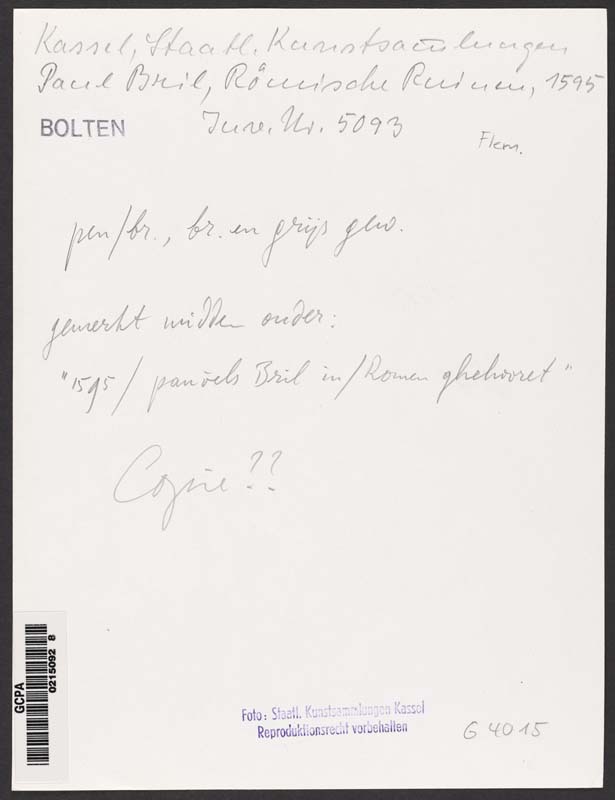 Kassel, Staatl. Kunstsam̄lungen
Paul Bril, Römische Ruinen, 1595
BOLTEN
Inv. Nr. 5093
Flem.
pen/br., br. en grijs gew.
gemerkt midden onder:
"1595/ pauvels Bril in/Romen
Copie??
GCPA
0215092 8
Foto: Staatl. Kunstsammlungen Kassel
Reproduktionsrecht vorbehalten
G 4015